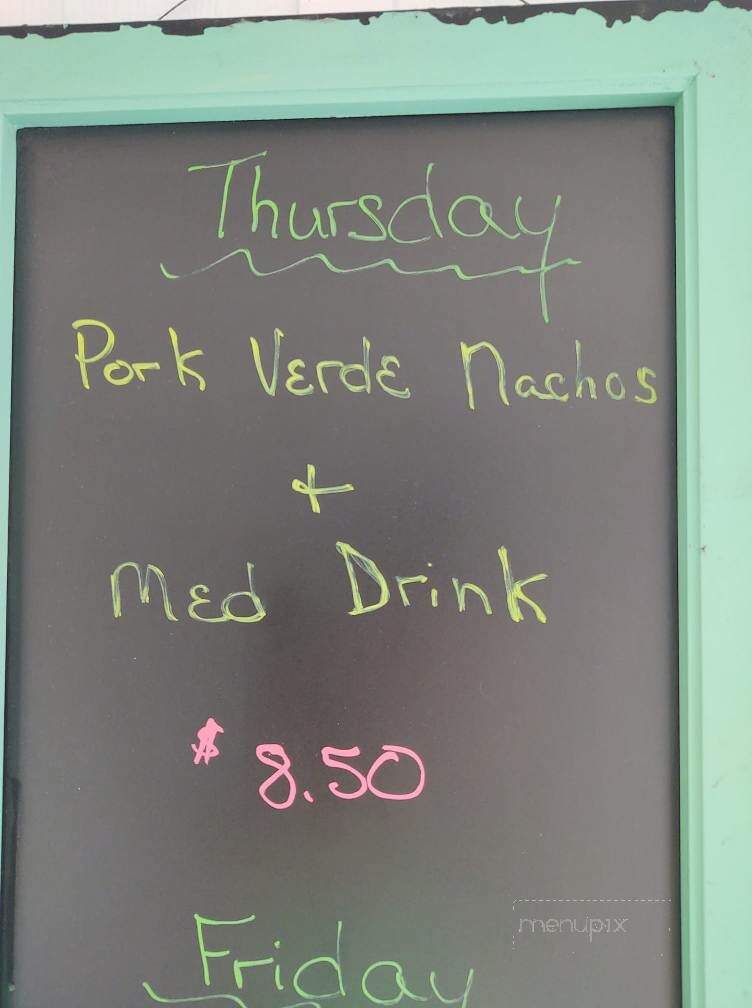 Thursday
Pork Verde Nachos
+
Med Drink
$8.50
menupix
Friday